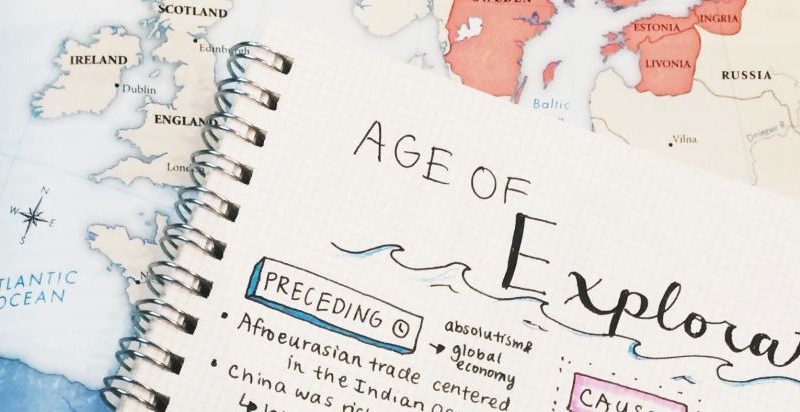 SCOTLAND
Edinburgh
IRELAND
Dublin
ENGLAND
N
W E
S
OCEAN
SWEDEN
ESTONIA
INGRIA
LIVONIA
RUSSIA
Baltic
Vilna
Dnieper R
AGE OF
PRECEDING
absolutism &
global
economy
Afroeurasian trade centered
in the Indian
China was